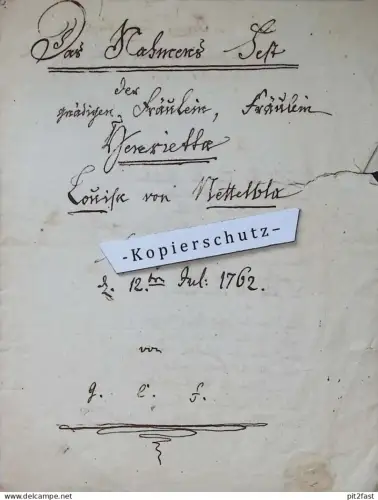 Das Nahmens Fest
der
gnädigen Fräulein, Fräulein
Henrietta
Louisa von Nettelbla
-Kopierschutz-
d. 12.ten Jul: 1762.
von
g. e. f.
pit2fast